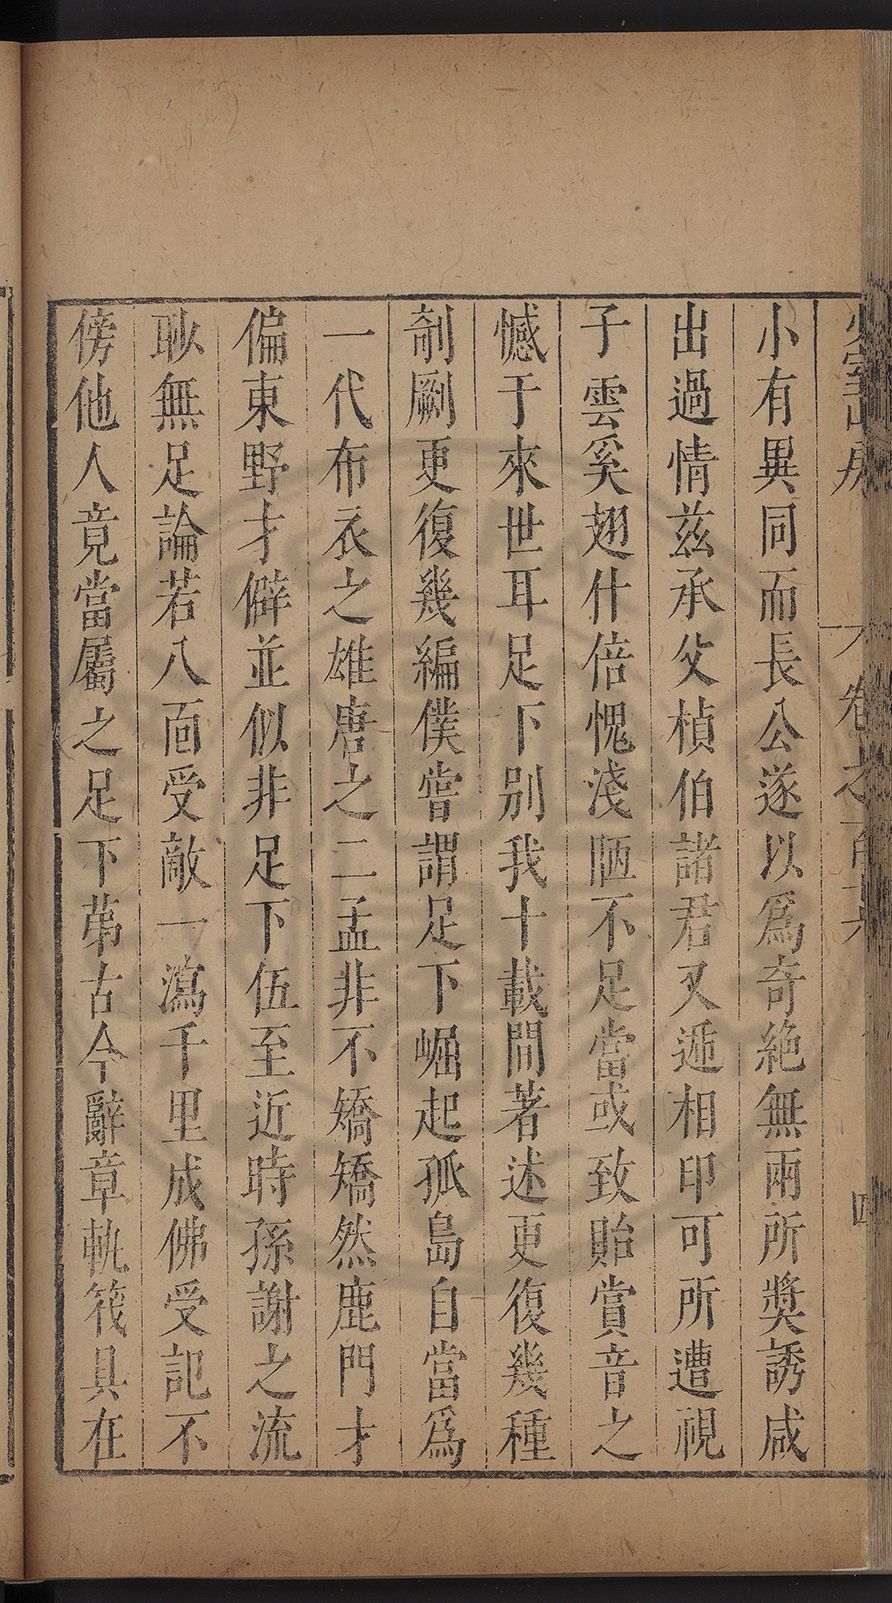 小有異同而長公遂以爲奇絶無兩所奬誘咸
出過情兹承父楨伯諸君又遞相印可所遭視
子雲奚翅什倍愧淺陋不足當或致貽賞音之
憾于來世耳足下别我十載間著述更復幾種
剞劂更復幾編僕嘗謂足下崛起孤島自當爲
一代布衣之雄唐之二孟非不矯矯然鹿門才
偏東野才僻並似非足下伍至近時孫謝之流
耿無足論若八面受敵一瀉千里成佛受記不
傍他人竟當屬之足下苐古今辭章軌筏具在